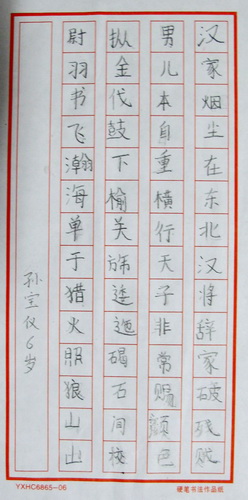 汉家烟尘在东北汉将辞家破残贼
男儿本自重横行天子非常赐颜色
摐金伐鼓下榆关旆逶迤碣石间校
尉羽书飞瀚海单于猎火照狼山山
孙宝仪6岁
YXHC6865-06
硬笔书法作品纸